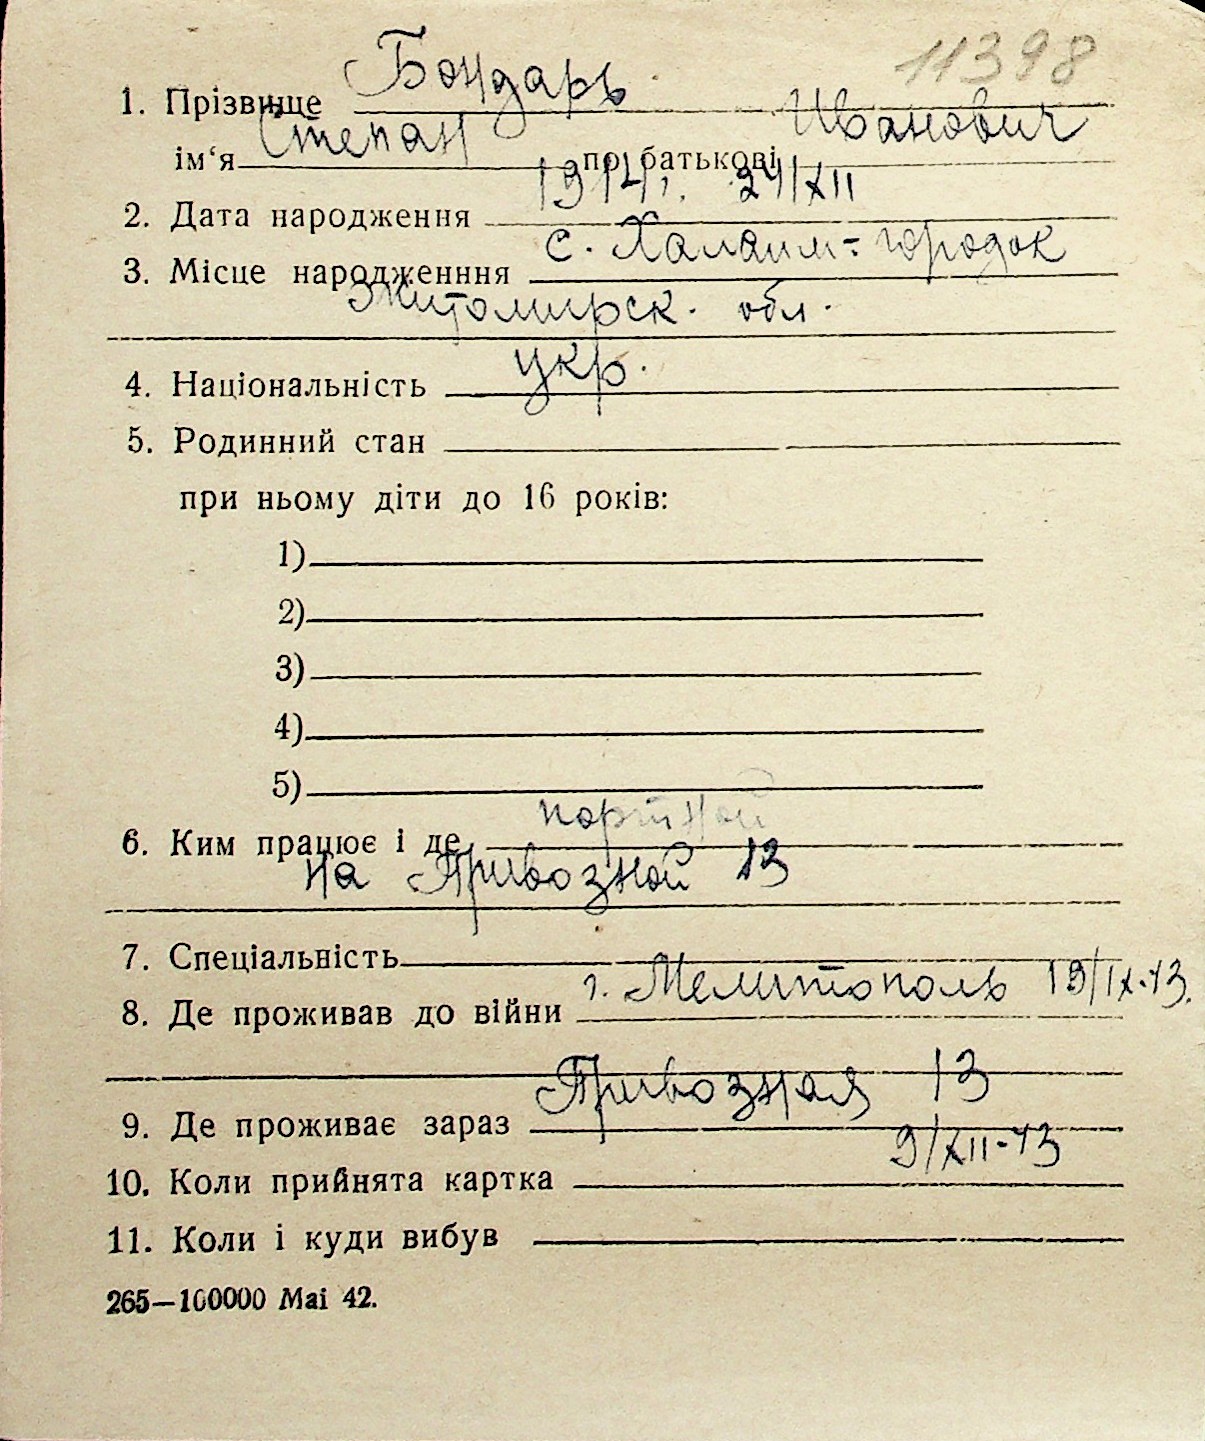 11398
1. Прізвище Бондарь
ім‘я Степан по батькові Иванович
2. Дата народження 1914 г. 24/XII
3. Місце народженння с. Халаим-городок
Житомирск. обл.
4. Національність укр.
5. Родинний стан
при ньому діти до 16 років:
1)
2)
3)
4)
5)
6. Ким працює і де портной
на Привозной 13
7. Спеціальність
8. Де проживав до війни г. Мелитополь 19/IX-43.
9. Де проживає зараз Привозная 13
10. Коли прийнята картка 9/XII-43
11. Коли і куди вибув
265—100000 Mai 42.